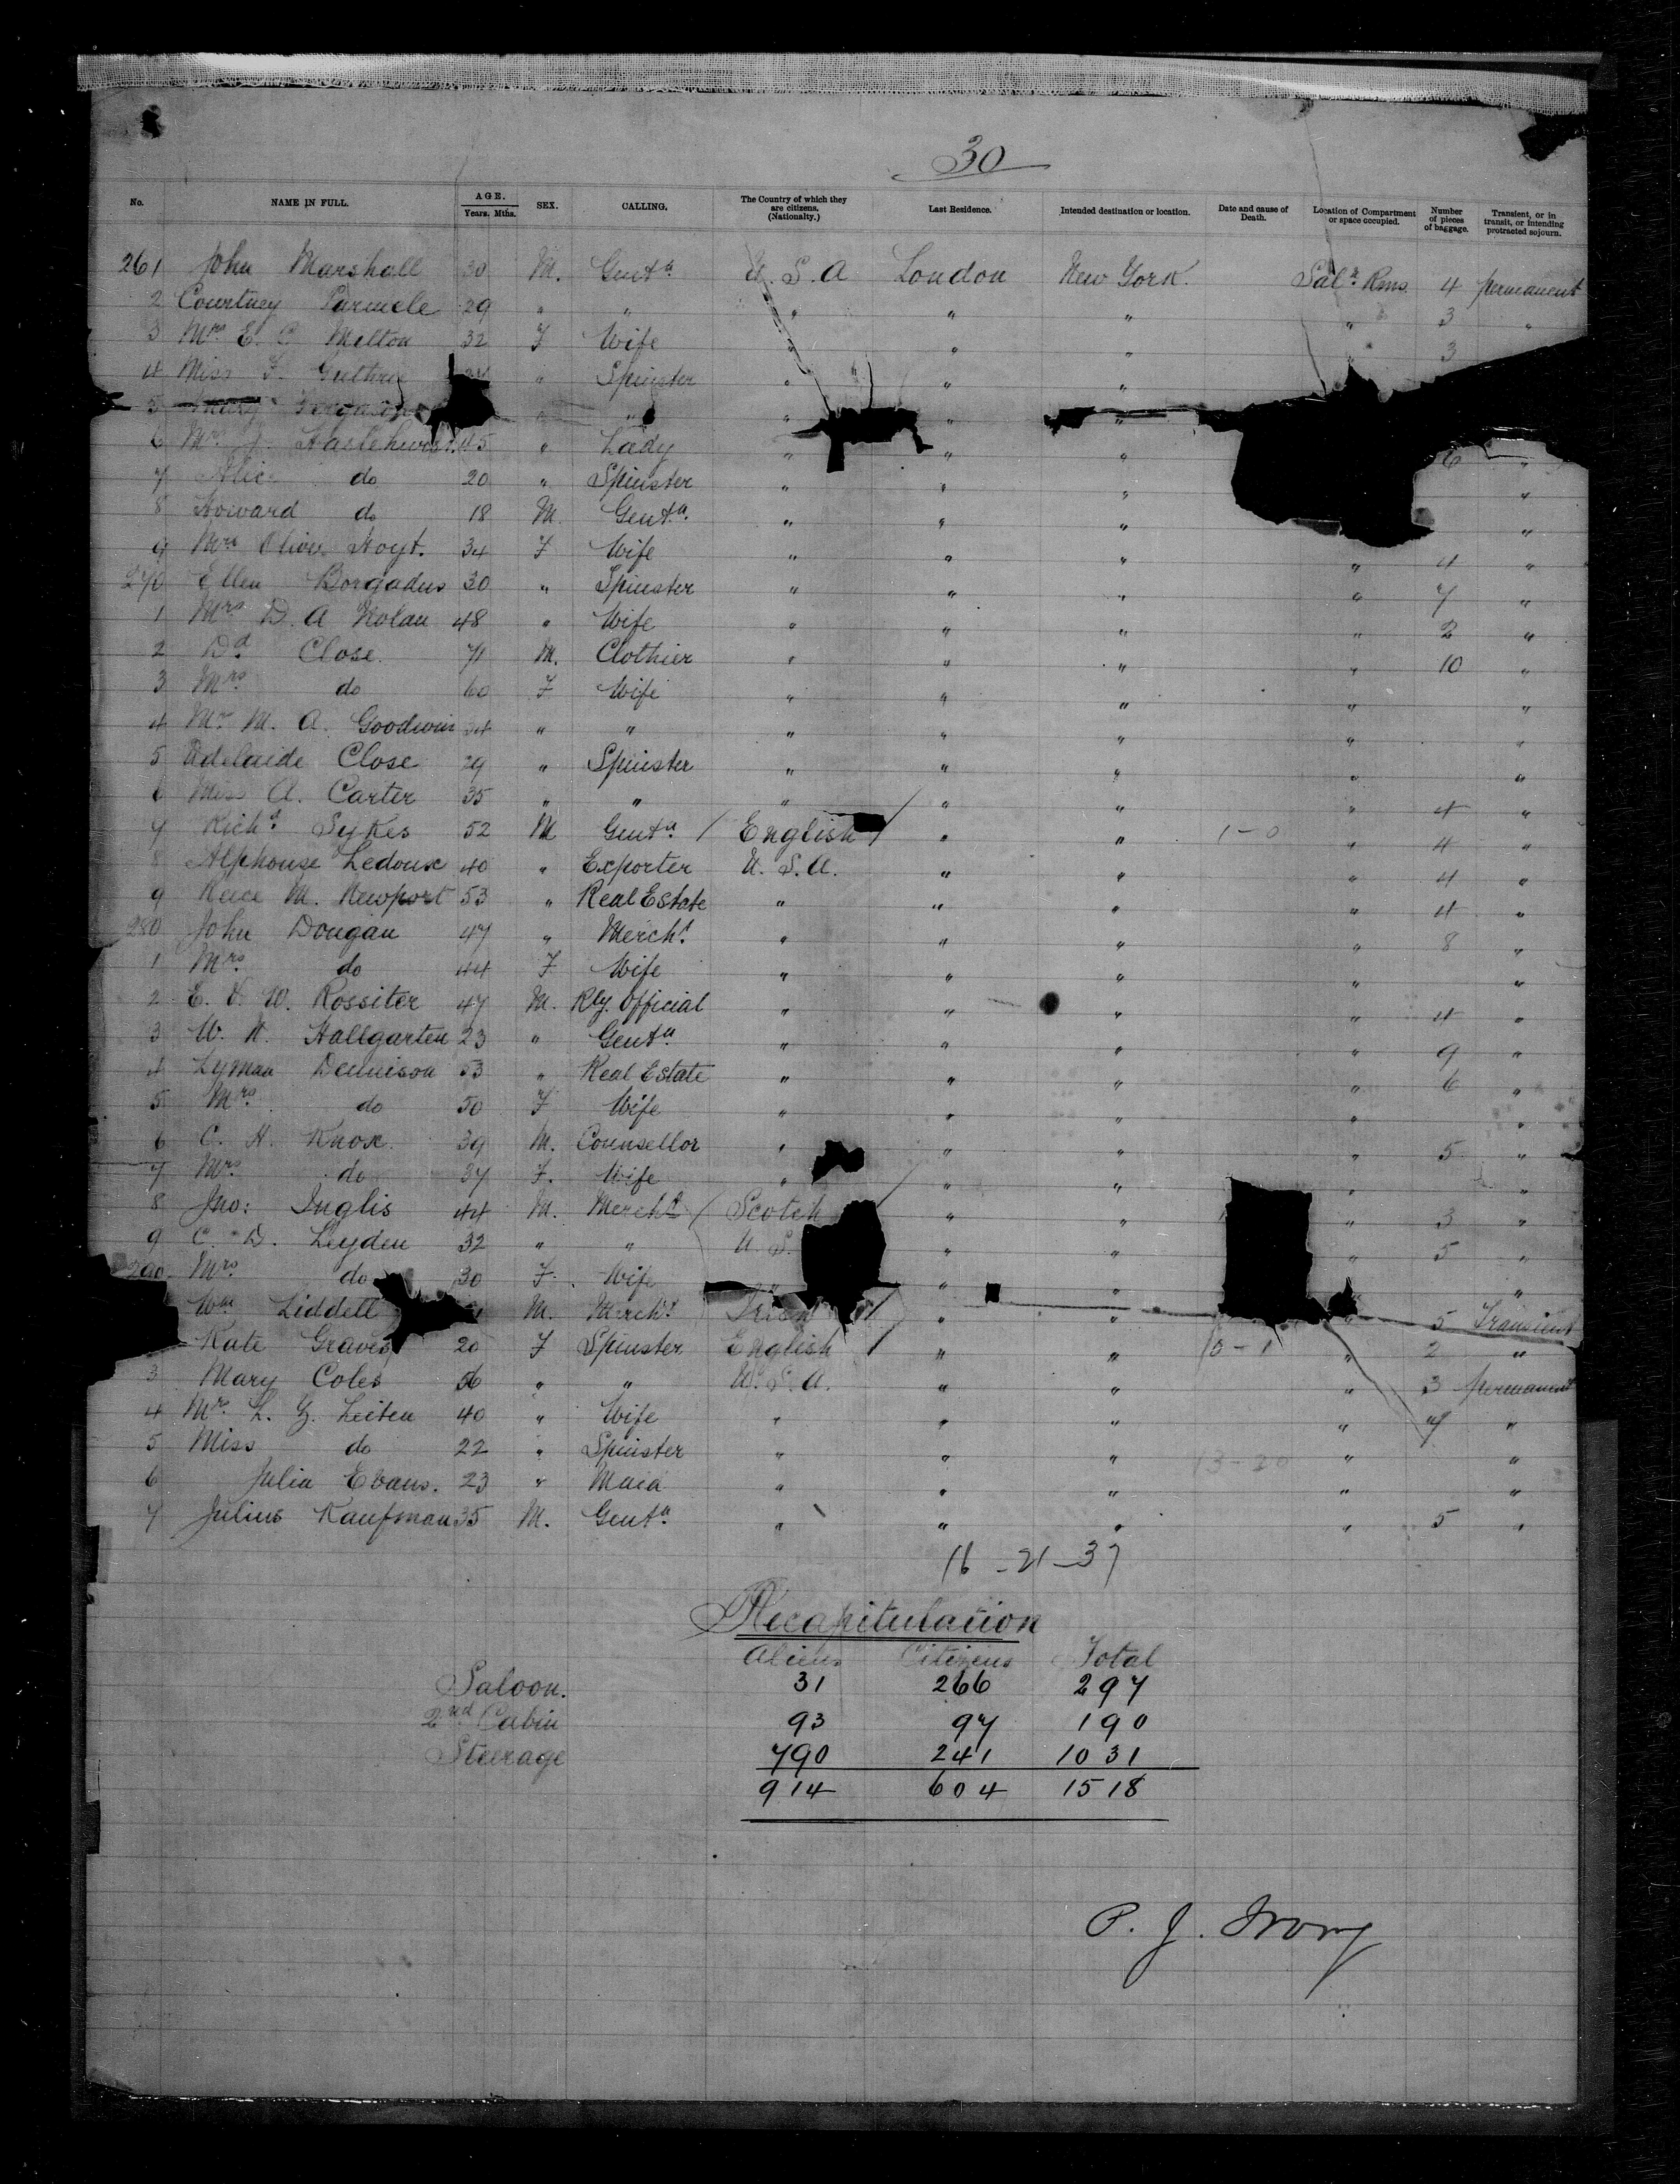 30
No. NAME IN FULL. AGE. Years. Mths. SEX. CALLING. The Country of which they are citizens. (Nationality.) Last Residence. Intended destination or location. Date and cause of Death. Location of Compartment or space occupied. Number of pieces of baggage. Transient, or in transit, or intending protracted sojourn.
261 John Marshall 30 M. Gentn U.S.A London New York. Saln Rms. 4 permanent
2 Courtney Parmele 29 " " " " " " 3 "
3 Mrs E. C. Melton 32 F Wife " " " " 3
4 Miss F. Guthrie " Spinster " " "
5 Mary " " " "
6 Mrs J. 45 " Lady " " " 6 "
7 Alice do 20 " Spinster " " " "
8 Howard do 18 M. Gentn. " " " "
9 Mrs Oliver Hoyt. 34 F Wife " " " " 4 "
270 Ellen Borgadus 30 " Spinster " " " " 7 "
1 Mrs D. A Nolan 48 " Wife " " " " 2 "
2 Dd Close. 71 M. Clothier " " " " 10 "
3 Mrs do 60 F Wife " " " " "
4 Mrs M. A. Goodwin 34 " " " " " " "
5 Adelaide Close 29 " Spinster " " " " "
6 Miss A. Carter 35 " " " " " " 4 "
7 Richd Sykes 52 M Gentn / English / " " 1-0 " 4 "
8 Alphonse Ledoux 40 " Exporter U.S.A. " " " 4 "
9 Reece M. Newport 53 " Real Estate " " " " 4 "
280 John Dougan 47 " Mercht " " " " 8 "
1 Mrs do 44 F Wife " " " "
2 E. V. W. Rossiter 47 M. Rly. Official " " " " 4 "
3 W. N. Hallgarten 23 " Gentn " " " " 9 "
4 Lyman Dennison 53 " Real Estate " " " " 6 "
5 Mrs do 50 F Wife " " " " "
6 C. H. Knox. 39 M. Counsellor " " " " 5 "
7 Mrs do 37 F. Wife " " " " "
8 Jno: Inglis 44 M. Mercht / Scotch / " " " 3 "
9 C. D. Leyden 32 " " U.S. " " " 5 "
290 Mrs do 30 F. Wife " " " "
Wm Liddell M. Mercht Irish / " " " 5 Transient
Kate Graves 20 F Spinster English / " " 0-1 " 2 "
3 Mary Coles 56 " " U.S.A. " " " 3 permanent
4 Mrs L. Z. Leiten 40 " Wife " " " " 7 "
5 Miss do 22 " Spinster " " " " "
6 Julia Evans. 23 " Maid " " " 13-20 " "
7 Julius Kaufman 35 M. Gentn " " " " 5 "
16-21-37
Recapitulation
Aliens Citizens Total
Saloon. 31 266 297
2nd Cabin 93 97 190
Steerage 790 241 1031
914 604 1518
P. J. Irony